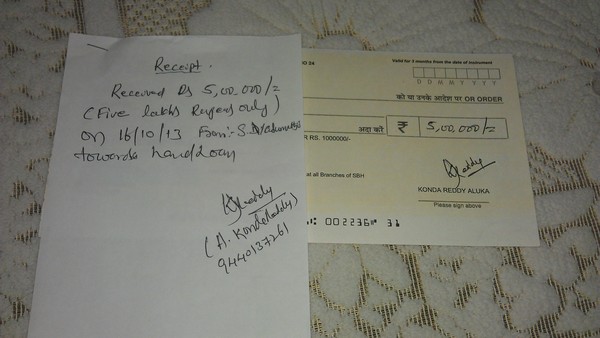 Receipt.
Received Rs 5,00,000/=
(Five lakhs Rupees only)
on 16/10/13 From:- S.
towards hand loan
Reddy
(A. Konda Reddy)
9440137261
Valid for 3 months from the date of instrument
D D M M Y Y Y Y
को या उनके आदेश पर OR ORDER
अदा करें ₹ 5,00,000/=
R RS. 1000000/-
at all Branches of SBH
Reddy
KONDA REDDY ALUKA
Please sign above
002236 31